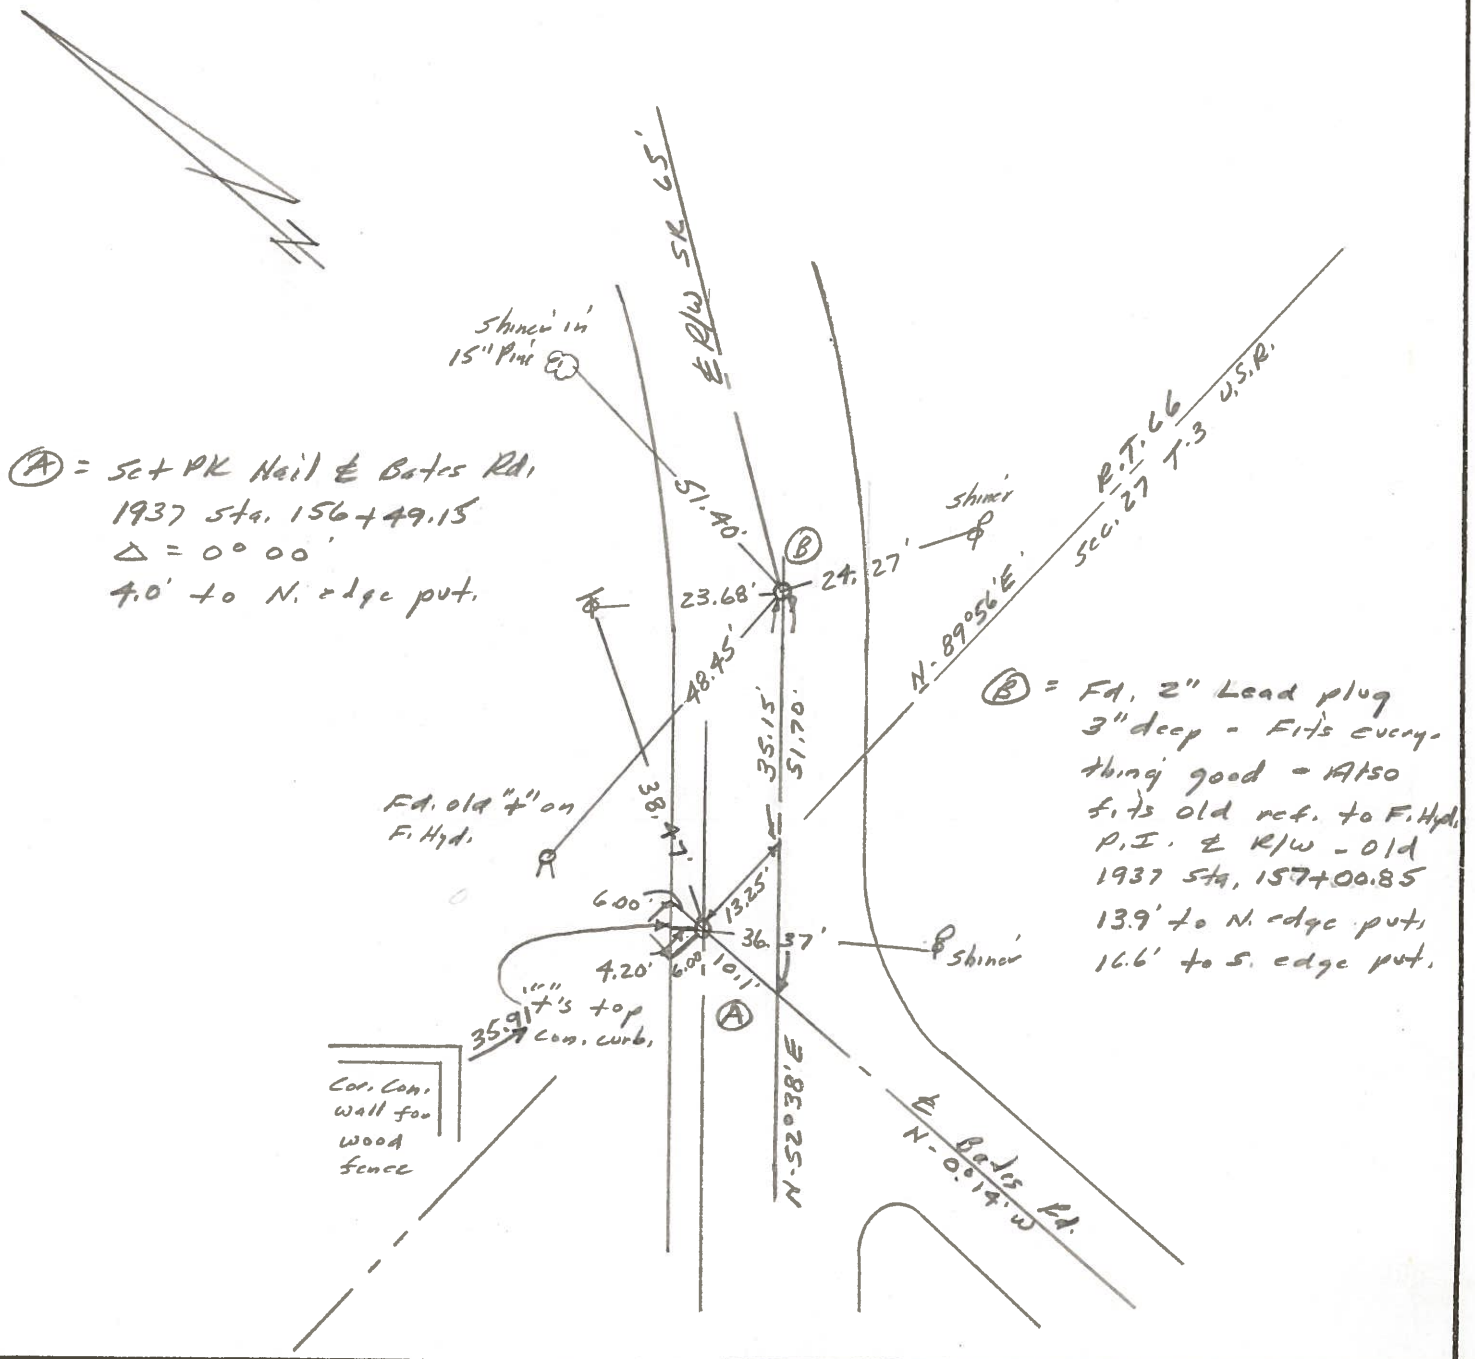 N
℄ R/W SR 65'
Shiner in
15" Pine
Ⓐ = Set PK Nail ℄ Bates Rd.
1937 sta. 156+49.15
Δ = 0° 00'
4.0' to N. edge pvt.
51.40'
Ⓑ
shiner
24.27'
23.68'
48.45'
R.T. 66
Sec. 27 T.3 U.S.R.
N-89°56'E
35.15'
51.70'
38.47'
Ⓑ = Fd. 2" Lead plug
3" deep - Fits every-
thing good - Also
fits old ref. to F. Hyd.
P.I. ℄ R/W - old
1937 sta. 157+00.85
13.9' to N. edge pvt.
16.6' to S. edge pvt.
Fd. old "+" on
F. Hyd.
6.00'
13.25'
36.37'
shiner
4.20'
6.00'
10.1'
Ⓐ
"+"s top
con. curb.
35.91'
Cor. Con.
wall for
wood
fence
N-52°38'E
℄ Bates Rd.
N-0°14'W